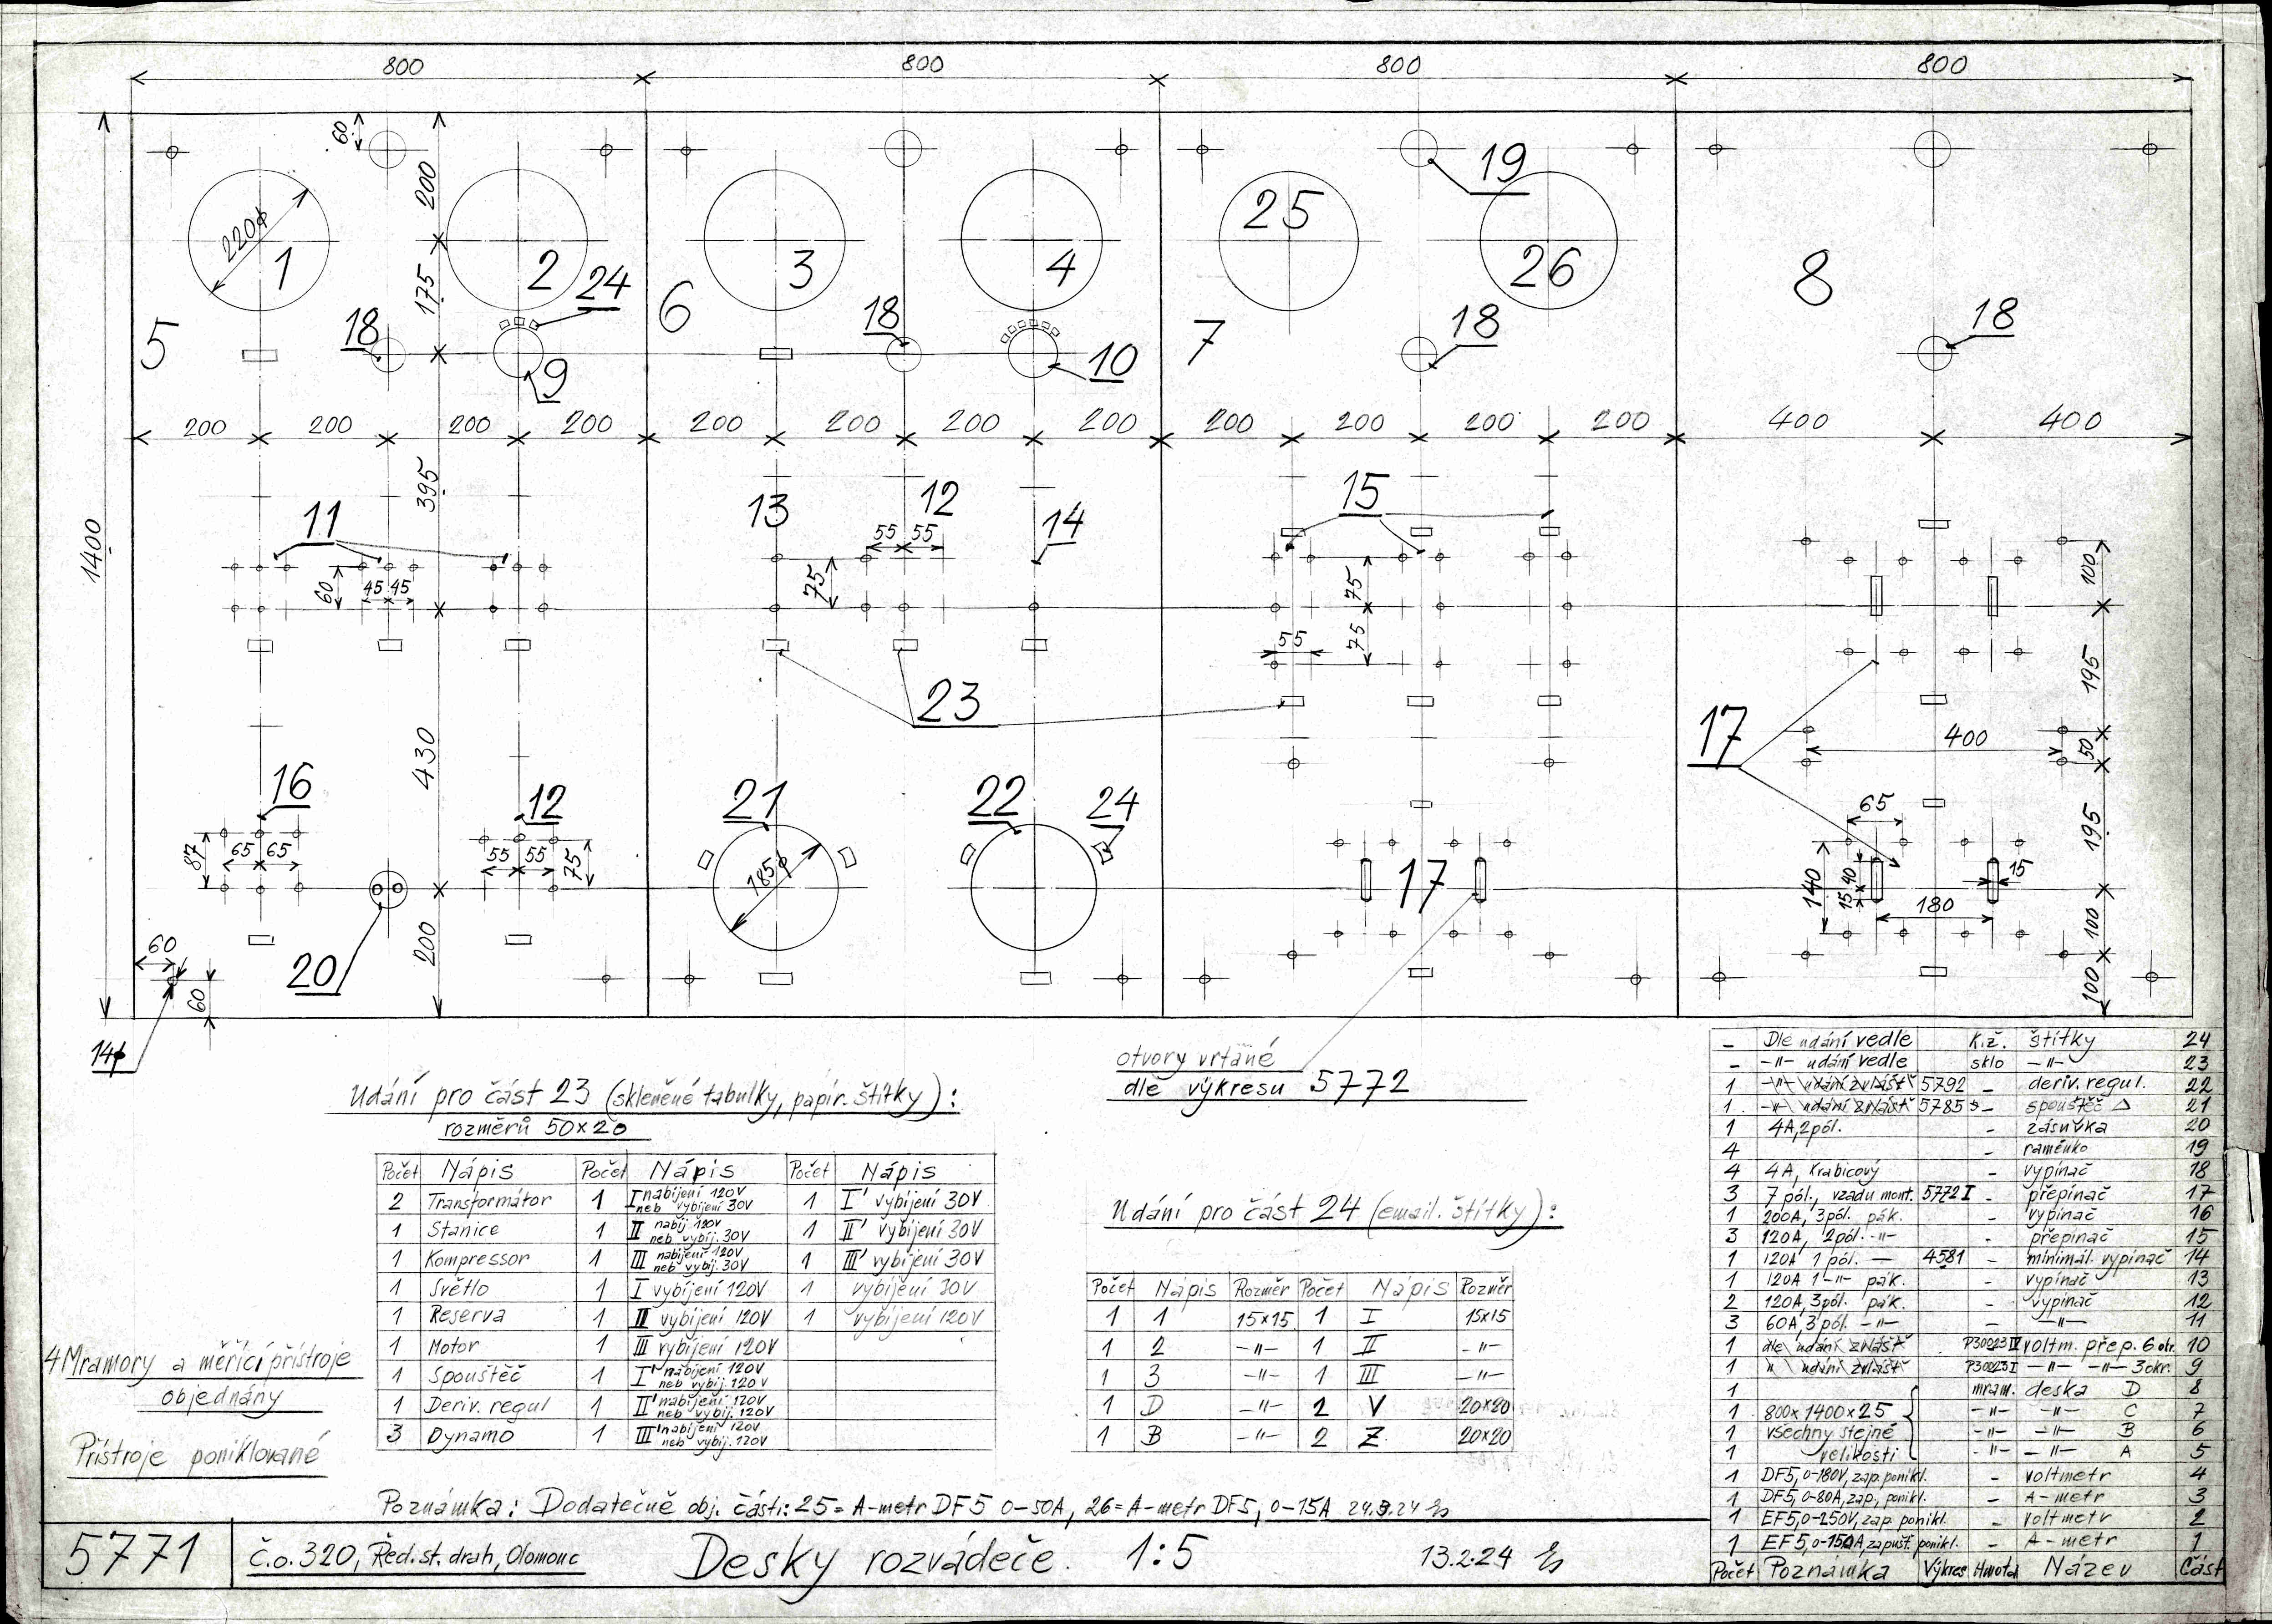 800 800 800 800
60 200 19
220ϕ 1 2 24 3 4 25 26 8
175
5 18 9 6 18 10 7 18 18
200 200 200 200 200 200 200 200 200 200 200 200 400 400
1400
395
11 13 12 14 15
55 55
60 45 45 75 75 75 55
100
195
23
17
400
50
430
16 12 21 22 24
87 65 65 55 55 75
185ϕ
17
65
140 15 40 15
180
195
100
100
60 60 200
20
14ϕ
otvory vrtáné
dle výkresu 5772
Udání pro část 23 (skleněné tabulky, papír. štítky):
rozměrů 50x20
Počet Nápis Počet Nápis Počet Nápis
2 Transformátor 1 I nabíjení 120V neb vybíjení 30V 1 I' vybíjení 30V
1 Stanice 1 II nabíj 120V neb vybíj. 30V 1 II' vybíjení 30V
1 Kompressor 1 III nabíjení 120V neb vybíj. 30V 1 III' vybíjení 30V
1 Světlo 1 I vybíjení 120V 1 vybíjení 30V
1 Reserva 1 II vybíjení 120V 1 vybíjení 120V
1 Motor 1 III vybíjení 120V
1 Spouštěč 1 I' nabíjení 120V neb vybíj. 120V
1 Deriv. regul 1 II' nabíjení 120V neb vybíj. 120V
3 Dynamo 1 III' nabíjení 120V neb vybíj. 120V
Udání pro část 24 (email. štítky):
Počet Nápis Rozměr Počet Nápis Rozměr
1 1 15x15 1 I 15x15
1 2 -"- 1 II -"-
1 3 -"- 1 III -"-
1 D -"- 2 V 20x20
1 B -"- 2 Z 20x20
4 Mramory a měřící přístroje
objednány
Přístroje poniklované
Poznámka: Dodatečně obj. části: 25 = A-metr DF5 0-50A, 26 = A-metr DF5, 0-15A 24.3.24
– Dle udání vedle K.ž. štítky 24
– -"- udání vedle sklo -"- 23
1 -"- udání zvlášť 5792 – deriv. regul. 22
1 -"- udání zvlášť 5785 – spouštěč △ 21
1 4A, 2pól. – zásuvka 20
4 – raménko 19
4 4A, krabicový – vypínač 18
3 7 pól., vzadu mont. 5772 I – přepínač 17
1 200A, 3pól. pák. – vypínač 16
3 120A, 2pól. -"- – přepínač 15
1 120A 1 pól. – 4581 – minimál. vypínač 14
1 120A 1-"- pák. – vypínač 13
2 120A, 3pól. pák. – vypínač 12
3 60A, 3 pól. -"- – -"- 11
1 dle udání zvlášť P30023 IV voltm. přep. 6 okr. 10
1 " udání zvlášť P30023 I -"- -"- 3okr. 9
1 mram. deska D 8
1 800x1400x25 -"- -"- C 7
1 všechny stejné -"- -"- B 6
1 velikosti -"- -"- A 5
1 DF5, 0-180V, zap. ponikl. – voltmetr 4
1 DF5, 0-80A, zap., ponikl. – A-metr 3
1 EF5, 0-250V, zap. ponikl. – voltmetr 2
1 EF5, 0-150A, zapušť. ponikl. – A-metr 1
Počet Poznámka Výkres Hmota Název Část
5771 Č.o. 320, Řed. st. drah, Olomouc Desky rozváděče. 1:5 13.2.24